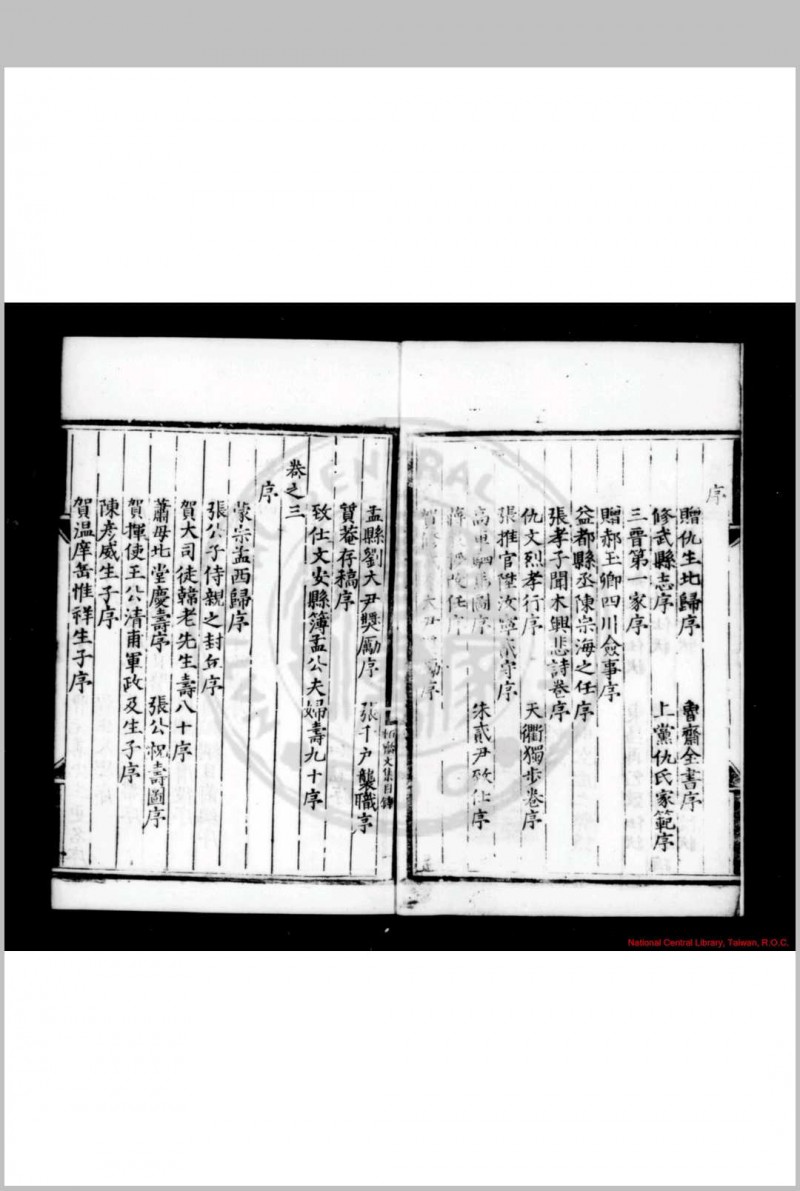 序
贈仇生北歸序　魯齋全書序
修武縣志序　上黨仇氏家範序
三晉第一家序
贈郝玉卿四川僉事序
益都縣丞陳宗海之任序
張孝子聞木興悲詩卷序
仇文烈孝行序　天衢獨步卷序
張推官陞汝寧貳守序
高車駟馬圖序　朱貳尹致仕序
之任序
大尹　勵序
孟縣劉大尹獎勵序　張千戶襲職序
質菴存稿序
致仕文安縣簿孟公夫婦壽九十序
卷之三
序
蒙宗孟西歸序
張公子侍親之封丘序
賀大司徒韓老先生壽八十序
蕭母北堂慶壽序　張公祝壽圖序
賀揮使王公清甫軍政及生子序
陳彥威生子序
賀溫庠岳惟祥生子序
文集目錄
NATIONAL CENTRAL LIBRARY
National Central Library, Taiwan, R.O.C.